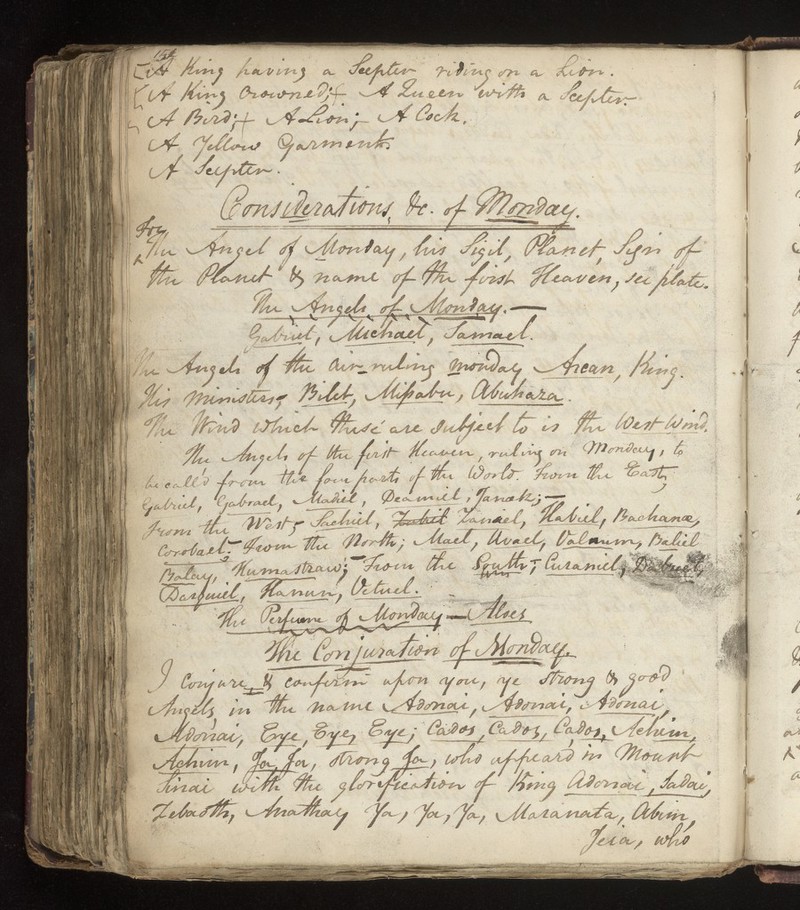 1st
A King having a Scepter riding on a Lion.
A King Crowned; + A Queen with a Scepter
A Bird; + A Lion; - A Cock.
A Yellow Garment.
A Scepter.
Considerations, &c. of Monday.
For
The Angel of Monday, his Sigil, Planet, Sign of
the Planet & name of the first Heaven, see plate.
The Angels of Monday. —
Gabriel, Michael, Samael.
The Angels of the Air ruling Monday Arcan, King.
His Ministers, Bilet, Missabu, Abuhaza.
The Wind which these are subject to is the West Wind.
The Angels of the first Heaven, ruling on Monday, to
be calld from the four parts of the World. From the East,
Gabriel, Gabrael, Madiel, Deamiel, Janak; —
From the West, Sachiel, Zaniel, Habiel, Bachanæ,
Corobael. From the North; Mael, Uvael, Valnum, Baliel
Balay, Humastraw; - From the South; - Curaniel, Dabriel,
Darquiel, Hanun, Vetuel.
The Perfume of Monday — Aloes
The Conjuration of Monday.
I Conjure & confirm upon you, ye strong & good
Angels, in the name Adonai, Adonai, Adonai,
Adonai, Eye, Eye, Eye; Cados, Cados, Cados, Achim,
Achim, Ja, Ja, strong Ja, who appeard in Mount
Sinai with the glorification of King Adonai, Sadai,
Zebaoth, Anathay Ya, Ya, Ya, Maranata, Abim,
Jeia, who